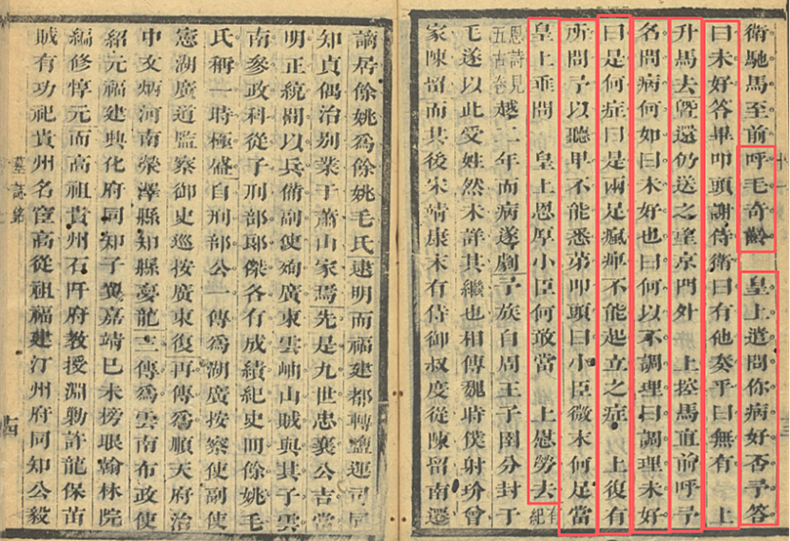 衛馳馬至前呼毛奇齡 皇上遣問你病好否予答
曰未好答畢叩頭謝侍衛曰有他奏乎曰無有 上
升馬去曁還仍送之望京門外 上控馬直前呼予
名問病何如曰未好也曰何以不調理曰調理未好
曰是何症曰是兩足瘋痺不能起立之症 上復有
所問予以聽卑不能悉第叩頭曰小臣微末何足當
皇上垂問 皇上恩厚小臣何敢當 上慰勞去有紀
恩詩見五古卷越二年而病遂劇予族自周王子圉分封于
毛遂以此受姓然未許其繼也相傳魏時僕射玠曾
家陳留而其後宋靖康末有侍御叔度從陳留南遷
謫居餘姚爲餘姚毛氏逮明而福建都轉鹽運司同
知貞偶治別業于蕭山家焉先是九世忠襄公吉當
明正統間以兵備副使殉廣東雲岫山賊與其子雲
南參政科從子刑部郎傑各有成績紀史冊餘姚毛
氏稱一時極盛自刑部公一傳爲湖廣按察使副使
憲湖廣道監察御史巡按廣東復再傳爲順天府治
中文炳河南滎澤縣知縣夢龍三傳爲雲南布政使
紹元福建興化府同知子翼嘉靖己未榜眼翰林院
編修惇元而高祖貴州石阡府教授淵勦許龍保苗
賊有功祀貴州名宦高從祖福建汀州府同知公毅
墓誌銘
十四